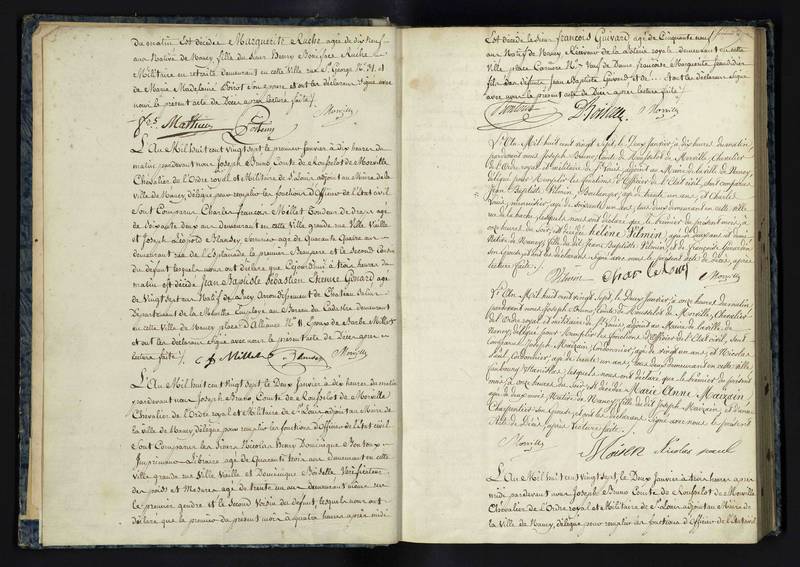 du matin Est décédée Marguerite Ruche agée de dix neuf
ans Native de Nancy fille du sieur Henry Boniface Ruche
Militaire en retraite demeurant en cette Ville rue St. George N.° 31. et
de Marie Madelaine Poirot son épouse et ont les déclarans signé avec
nous le présent acte de Décès après lecture faite /.
Mathieu Morville
L'An Mil huit cent vingt sept le premier Janvier à dix heures du
matin pardevant nous Joseph Bruno Comte de Rouffelot de Morville
Chevalier de l'Ordre royal et Militaire de St. Louis adjoint au Maire de la
ville de Nancy, délégué pour remplir les fonctions d'Officier de l'état civil
Sont Comparus Charles François Millet Tondeur de draps agé
de Soixante deux ans demeurant en cette ville grande rue Ville Vieille
et Joseph Léopold agé de Quarante Quatre ans
demeurant rue de l'Esplanade le premier Beaupere et le second Cousin
du défunt lesquels nous ont déclaré que Cejourd'hui à trois heures du
matin est décédé Jean Baptiste Sébastien Etienne Gérard agé
de Vingt sept ans Natif de arrondissement de Château Salins
Département de la Meurthe Employé au Bureau du Cadastre demeurant
en cette ville de Nancy place d'Alliance N.° 11. Epoux de Barbe Millet
et ont les déclarans signé avec nous le présent acte de Décès après
lecture faite /. Millet Morville
L'An Mil huit cent Vingt Sept le Deux Janvier à dix heures du matin
pardevant nous Joseph Bruno Comte de Rouffelot de Morville
Chevalier de l'Ordre royal et Militaire de St. Louis adjoint au Maire de
la Ville de Nancy, délégué pour remplir les fonctions d'Officier de l'état civil
Sont Comparus les Sieurs Nicolas Henry Dominique Bontoux
Imprimeur Libraire agé de Quarante trois ans demeurant en cette
ville grande rue Ville Vieille et Dominique Vérificateur
des poids et Mesures agé de trente un ans demeurant même rue
le premier gendre et le second Voisin du défunt, lesquels nous ont
déclaré que le premier du présent mois à quatre heures après midi
Est décédé le Sieur François Guivard agé de Cinquante neuf
ans Natif de Nancy Receveur de la Loterie royale demeurant en cette
ville place Carrière N.° neuf de Dame Françoise Marguerite
fils des défunts Jean Baptiste Guivard et de ... et ont les déclarans signé
avec nous le présent acte de Décès après lecture faite /.
Bontoux Morville
L'An Mil huit cent vingt Sept, le Deux Janvier à dix heures du matin
pardevant nous Joseph Bruno, Comte de Rouffelot de Morville, Chevalier
de l'Ordre royal et militaire de St. Louis, adjoint au Maire de la ville de Nancy,
délégué pour remplir les fonctions d'Officier de l'Etat Civil, sont comparus
Jean Baptiste Vilmin, Boulanger, agé de trente un ans, et Charles
Leroux, menuisier, agé de soixante un ans, tous deux demeurant en cette ville
rue de la hache, lesquels nous ont déclaré que le premier du présent mois, à
onze heures du soir, est décédée héléne Vilmin, agée de deux ans et demi
Native de Nancy, fille du dit Jean Baptiste Vilmin, et de Françoise
son Epouse, et ont les déclarans signé avec nous le présent acte de Décès, après
lecture faite /.
Vilmin Morville
L'An Mil huit cent vingt Sept, le Deux Janvier à onze heures du matin,
pardevant nous Joseph Bruno, Comte de Rouffelot de Morville, Chevalier
de l'Ordre royal et militaire de St. Louis, adjoint au Maire de la ville de
Nancy, délégué pour remplir les fonctions d'Officier de l'Etat civil, sont
comparus Joseph Maizain, Cordonnier, agé de vingt un ans, et Nicolas
Cordonnier, agé de trente un ans, tous deux demeurant en cette ville
faubourg Stanislas, lesquels nous ont déclaré que le premier du présent
mois à onze heures du soir, est décédée Marie Anne Maizain,
agée de deux ans, Native de Nancy, fille du dit Joseph Maizain, et d'Anne
Charpentier son épouse, et ont les déclarans signé avec nous le présent
Acte de Décès, après lecture faite /.
Morville
Nicolas
L'An Mil huit cent Vingt sept, le Deux Janvier à trois heures après
midi pardevant nous Joseph Bruno Comte de Rouffelot de Morville
Chevalier de l'Ordre royal et Militaire de St. Louis adjoint au Maire de
la Ville de Nancy, délégué pour remplir les fonctions d'Officier de l'Etat civil